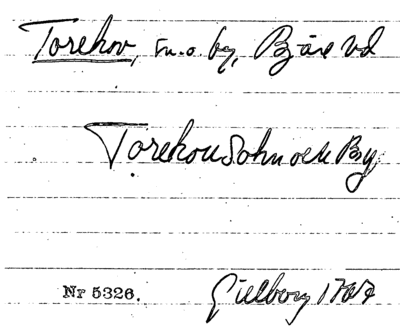 Torekov, sn. o. by, Bjäre hd
Torekou Sohn och By
Nr 5326.
Gielborg